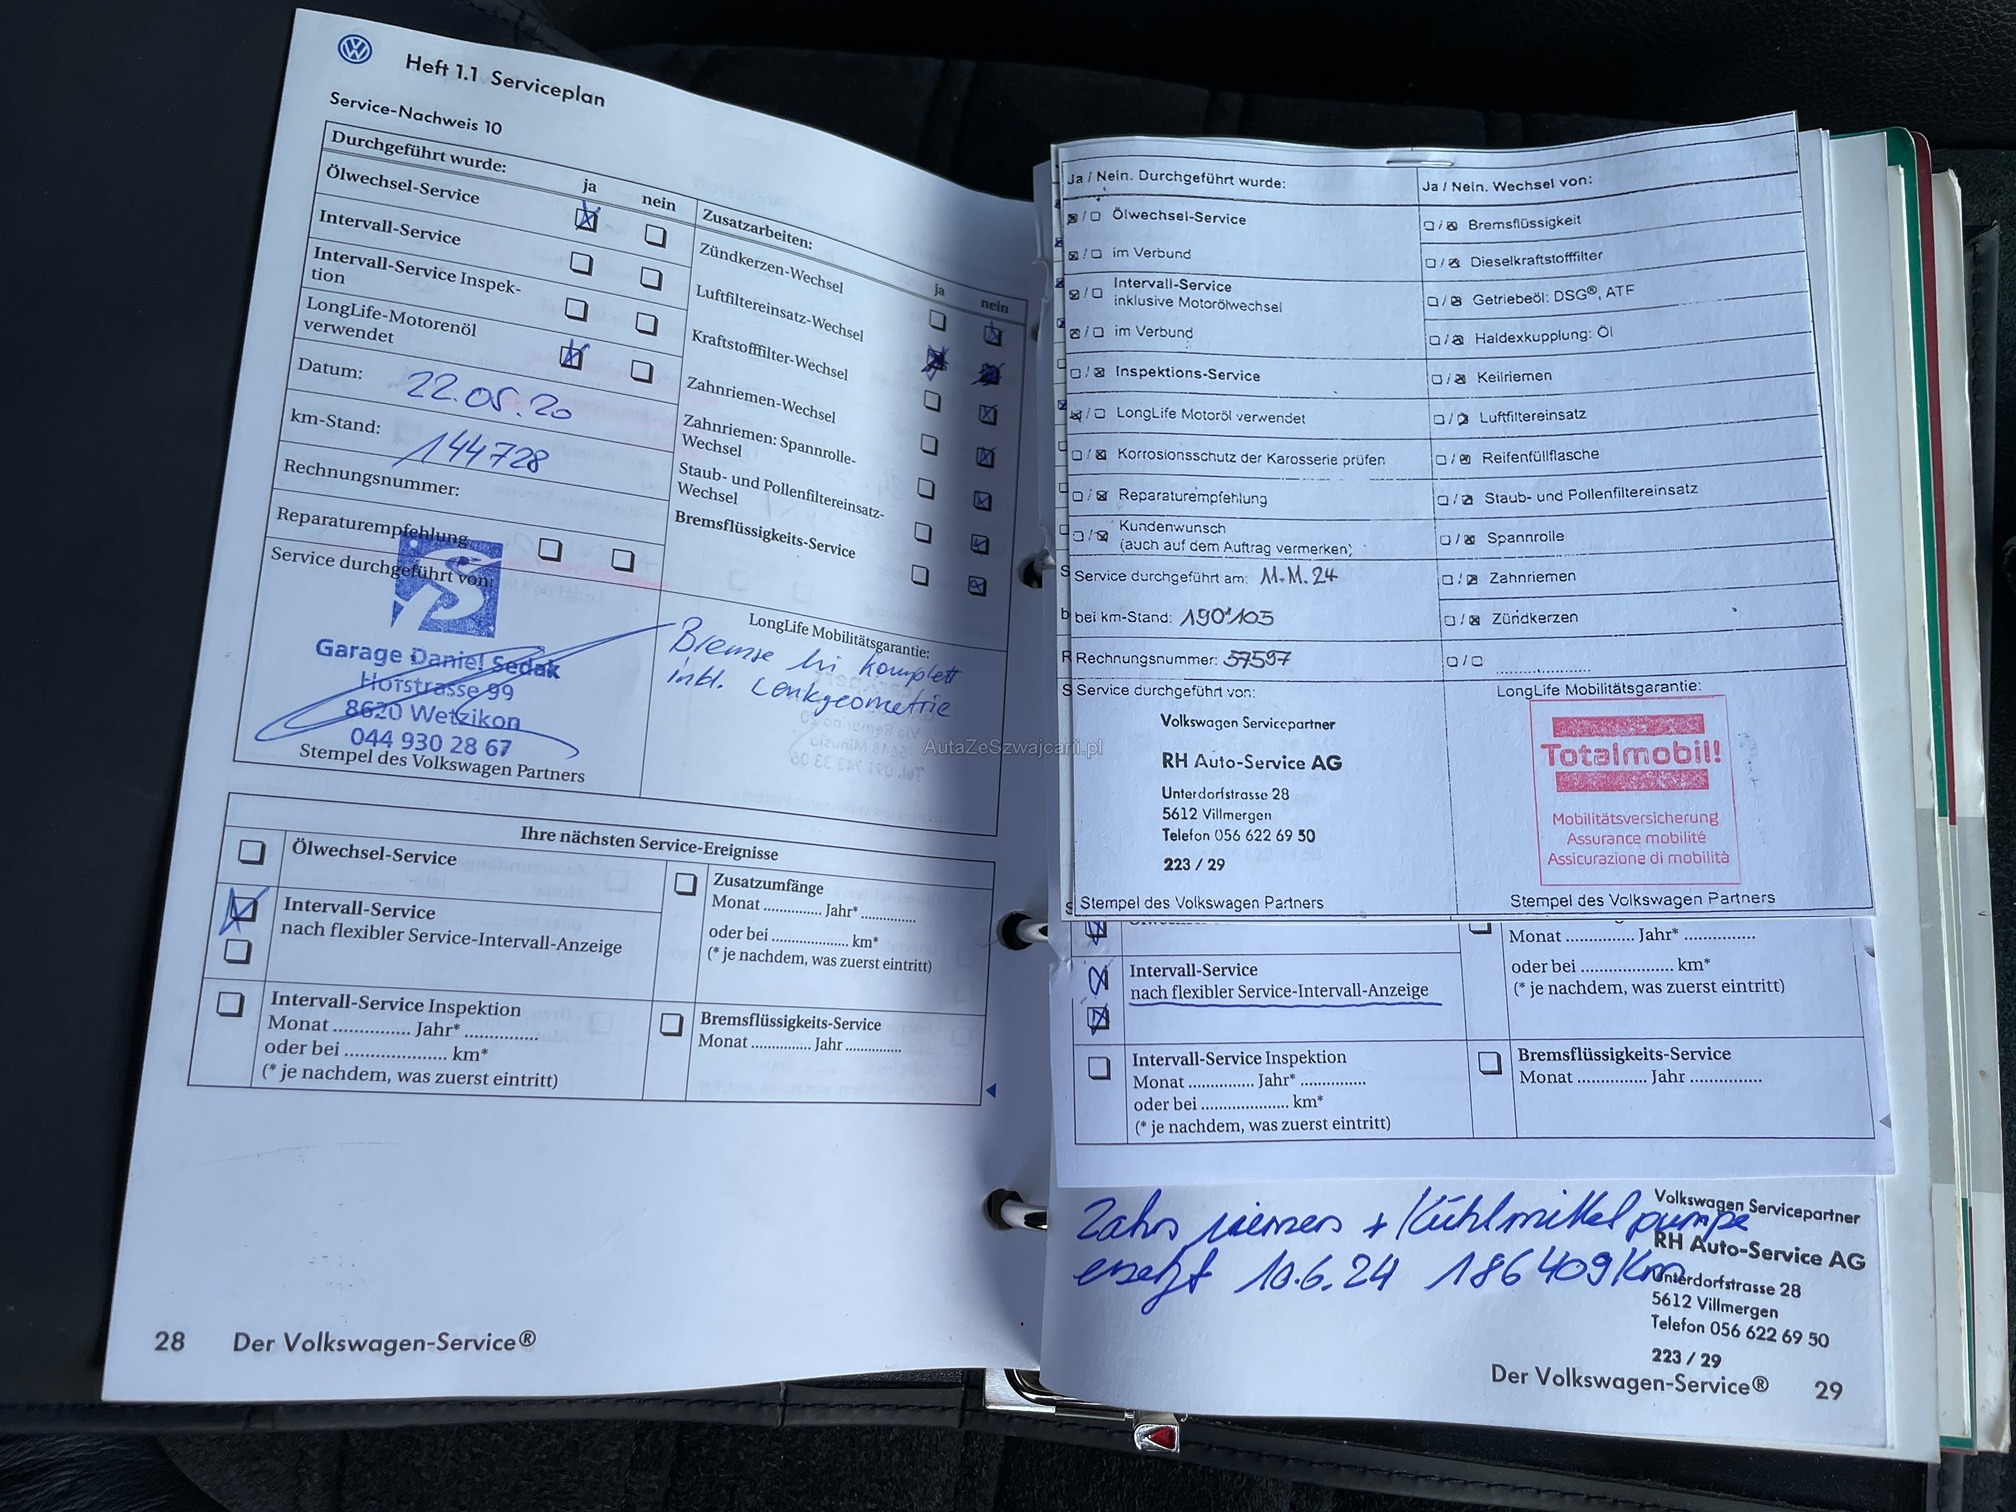 Heft 1.1 Serviceplan
Service-Nachweis 10
Durchgeführt wurde:
ja nein
Ölwechsel-Service
Intervall-Service
Intervall-Service Inspek-
tion
LongLife-Motorenöl
verwendet
Datum: 22.05.20
km-Stand: 144728
Rechnungsnummer:
Reparaturempfehlung
Service durchgeführt von:
Garage Daniel Sedak
Hofstrasse 99
8620 Wetzikon
044 930 28 67
Stempel des Volkswagen Partners
Zusatzarbeiten:
ja nein
Zündkerzen-Wechsel
Luftfiltereinsatz-Wechsel
Kraftstofffilter-Wechsel
Zahnriemen-Wechsel
Zahnriemen: Spannrolle-
Wechsel
Staub- und Pollenfiltereinsatz-
Wechsel
Bremsflüssigkeits-Service
LongLife Mobilitätsgarantie:
Bremse hi komplett
inkl. Lenkgeometrie
AutaZeSzwajcarii.pl
Ihre nächsten Service-Ereignisse
Ölwechsel-Service
Intervall-Service
nach flexibler Service-Intervall-Anzeige
Intervall-Service Inspektion
Monat ............... Jahr* ..............
oder bei .................... km*
(* je nachdem, was zuerst eintritt)
Zusatzumfänge
Monat ............. Jahr* .............
oder bei .................... km*
(* je nachdem, was zuerst eintritt)
Bremsflüssigkeits-Service
Monat ............. Jahr .............
28 Der Volkswagen-Service®
Ja / Nein. Durchgeführt wurde:
Ölwechsel-Service
im Verbund
Intervall-Service
inklusive Motorölwechsel
im Verbund
Inspektions-Service
LongLife Motoröl verwendet
Korrosionsschutz der Karosserie prüfen
Reparaturempfehlung
Kundenwunsch
(auch auf dem Auftrag vermerken)
Service durchgeführt am: 11.11.24
bei km-Stand: 190'105
Rechnungsnummer: 57597
Service durchgeführt von:
Volkswagen Servicepartner
RH Auto-Service AG
Unterdorfstrasse 28
5612 Villmergen
Telefon 056 622 69 50
223 / 29
Stempel des Volkswagen Partners
Ja / Nein. Wechsel von:
Bremsflüssigkeit
Dieselkraftstofffilter
Getriebeöl: DSG®, ATF
Haldexkupplung: Öl
Keilriemen
Luftfiltereinsatz
Reifenfüllflasche
Staub- und Pollenfiltereinsatz
Spannrolle
Zahnriemen
Zündkerzen
....................
LongLife Mobilitätsgarantie:
Totalmobil!
Mobilitätsversicherung
Assurance mobilité
Assicurazione di mobilità
Stempel des Volkswagen Partners
Intervall-Service
nach flexibler Service-Intervall-Anzeige
Intervall-Service Inspektion
Monat .............. Jahr* ..............
oder bei .................... km*
(* je nachdem, was zuerst eintritt)
Monat .............. Jahr* ..............
oder bei .................... km*
(* je nachdem, was zuerst eintritt)
Bremsflüssigkeits-Service
Monat .............. Jahr ..............
Zahnriemen + Kühlmittelpumpe
ersetzt 10.6.24 186409Km
Volkswagen Servicepartner
RH Auto-Service AG
Unterdorfstrasse 28
5612 Villmergen
Telefon 056 622 69 50
223 / 29
Der Volkswagen-Service® 29